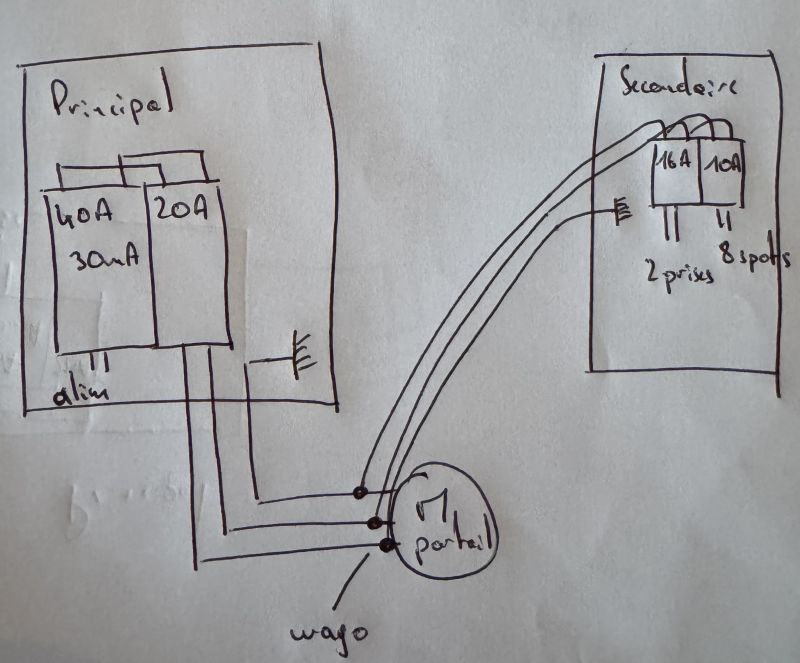 Principal
40A
30mA
20A
alim
Secondaire
16A
10A
2 prises
8 spots
M
portail
wago